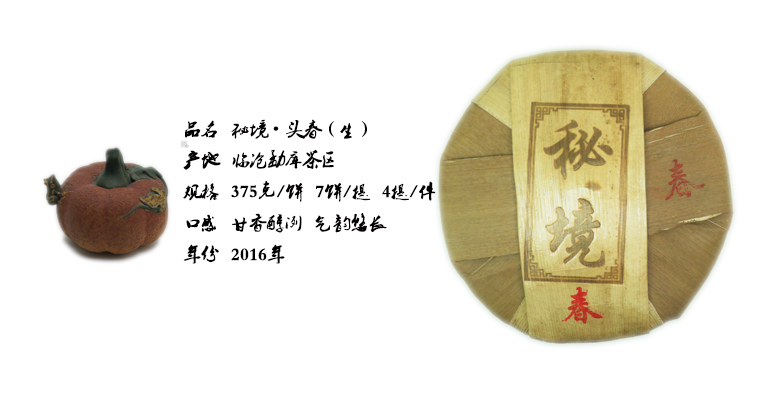 品名 秘境·头春(生)
产地 临沧勐库茶区
规格 375克/饼 7饼/提 4提/件
口感 甘香醇冽 气韵悠长
年份 2016年
秘境
春
春